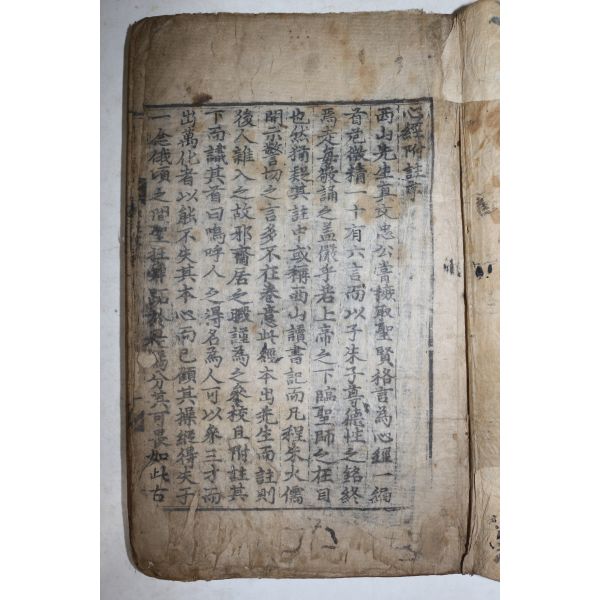 心經附註序
西山先生真文忠公嘗摭取聖賢格言為心經一編
首危微精一十有六言而以子朱子尊德性之銘終
焉走每敬誦之盖儼乎若上帝之下臨聖師之在目
也然猶疑其註中或稱西山讀書記而凡程朱大儒
開示警切之言多不在卷意此經本出先生而註則
後人雜入之故邪齋居之暇謹為之參校且附註其
下而識其首曰嗚呼人之得名為人可以參三才而
出萬化者以能不失其本心而已顧其操縱得失于
一念俄頃之間聖狂舜跖於焉分其可畏如此古